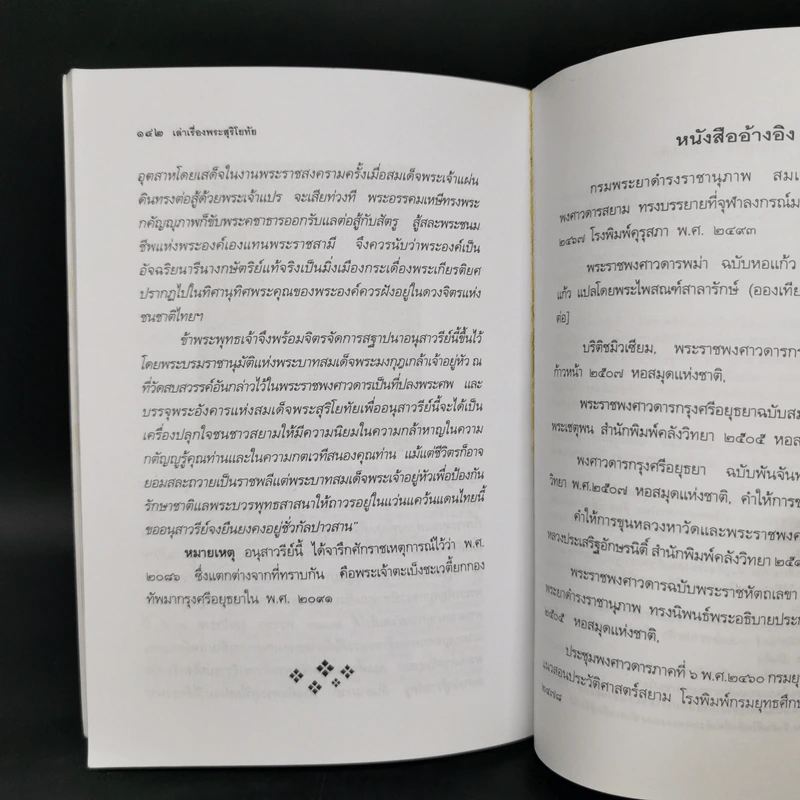 ๑๔๒ เล่าเรื่องพระสุริโยทัย
อุตสาหโดยเสด็จในงานพระราชสงครามครั้งเมื่อสมเด็จพระเจ้าแผ่น
ดินทรงต่อสู้ด้วยพระเจ้าแปร จะเสียท่วงที พระอรรคมเหษีทรงพระ
กตัญญุภาพก็ขับพระคชาธารออกรับแลต่อสู้กับสัตรู สู้สละพระชนม
ชีพแห่งพระองค์เองแทนพระราชสามี จึงควรนับว่าพระองค์เป็น
อัจฉริยนารีนางกษัตริย์แท้จริงเป็นมิ่งเมืองกระเดื่องพระเกียรติยศ
ปรากฏไปในทิศานุทิศพระคุณของพระองค์ควรฝังอยู่ในดวงจิตรแห่ง
ชนชาติไทยฯ
ข้าพระพุทธเจ้าจึงพร้อมจิตรจัดการสฐาปนาอนุสาวรีย์นี้ขึ้นไว้
โดยพระบรมราชานุมัติแห่งพระบาทสมเด็จพระมงกุฎเกล้าเจ้าอยู่หัว ณ
ที่วัดสบสวรรค์อันกล่าวไว้ในพระราชพงศาวดารเป็นที่ปลงพระศพ และ
บรรจุพระอังคารแห่งสมเด็จพระสุริโยทัยเพื่ออนุสาวรีย์นี้จะได้เป็น
เครื่องปลุกใจชนชาวสยามให้มีความนิยมในความกล้าหาญในความ
กตัญญูรู้คุณท่านและในความกตเวทีสนองคุณท่าน แม้แต่ชีวิตรก็อาจ
ยอมสละถวายเป็นราชพลีแด่พระบาทสมเด็จพระเจ้าอยู่หัวเพื่อป้องกัน
รักษาชาติแลพระบวรพุทธสาสนาให้ถาวรอยู่ในแว่นแคว้นแดนไทยนี้
ขออนุสาวรีย์จงยืนยงคงอยู่ชั่วกัลปาวสาน"
หมายเหตุ อนุสาวรีย์นี้ ได้จารึกศักราชเหตุการณ์ไว้ว่า พ.ศ.
๒๐๘๖ ซึ่งแตกต่างจากที่ทราบกัน คือพระเจ้าตะเบ็งชะเวตี้ยกกอง
ทัพมากรุงศรีอยุธยาใน พ.ศ. ๒๐๙๑
หนังสืออ้างอิง
กรมพระยาดำรงราชานุภาพ สมเ
พงศาวดารสยาม ทรงบรรยายที่จุฬาลงกรณ์ม
๒๔๖๗ โรงพิมพ์คุรุสภา พ.ศ. ๒๔๙๓
พระราชพงศาวดารพม่า ฉบับหอแก้ว
แก้ว แปลโดยพระไพสณฑ์สาลารักษ์ (อองเทีย
ต่อ]
บริติชมิวเซียม, พระราชพงศาวดารกร
ก้าวหน้า ๒๕๐๗ หอสมุดแห่งชาติ,
พระราชพงศาวดารกรุงศรีอยุธยาฉบับสม
พระเชตุพน สำนักพิมพ์คลังวิทยา ๒๕๐๕ หอส
พงศาวดารกรุงศรีอยุธยา ฉบับพันจันท
วิทยา พ.ศ.๒๕๐๗ หอสมุดแห่งชาติ, คำให้การข
คำให้การขุนหลวงหาวัดและพระราชพงศ
หลวงประเสริฐอักษรนิติ์ สำนักพิมพ์คลังวิทยา ๒๕๑
พระราชพงศาวดารฉบับพระราชหัตถเลขา
พระยาดำรงราชานุภาพ ทรงนิพนธ์พระอธิบายประก
๒๕๐๕ หอสมุดแห่งชาติ,
ประชุมพงศาวดารภาคที่ ๖ พ.ศ.๒๔๖๐ กรมยุท
แนวสอนประวัติศาสตร์สยาม โรงพิมพ์กรมยุทธศึก
๒๔๗๘